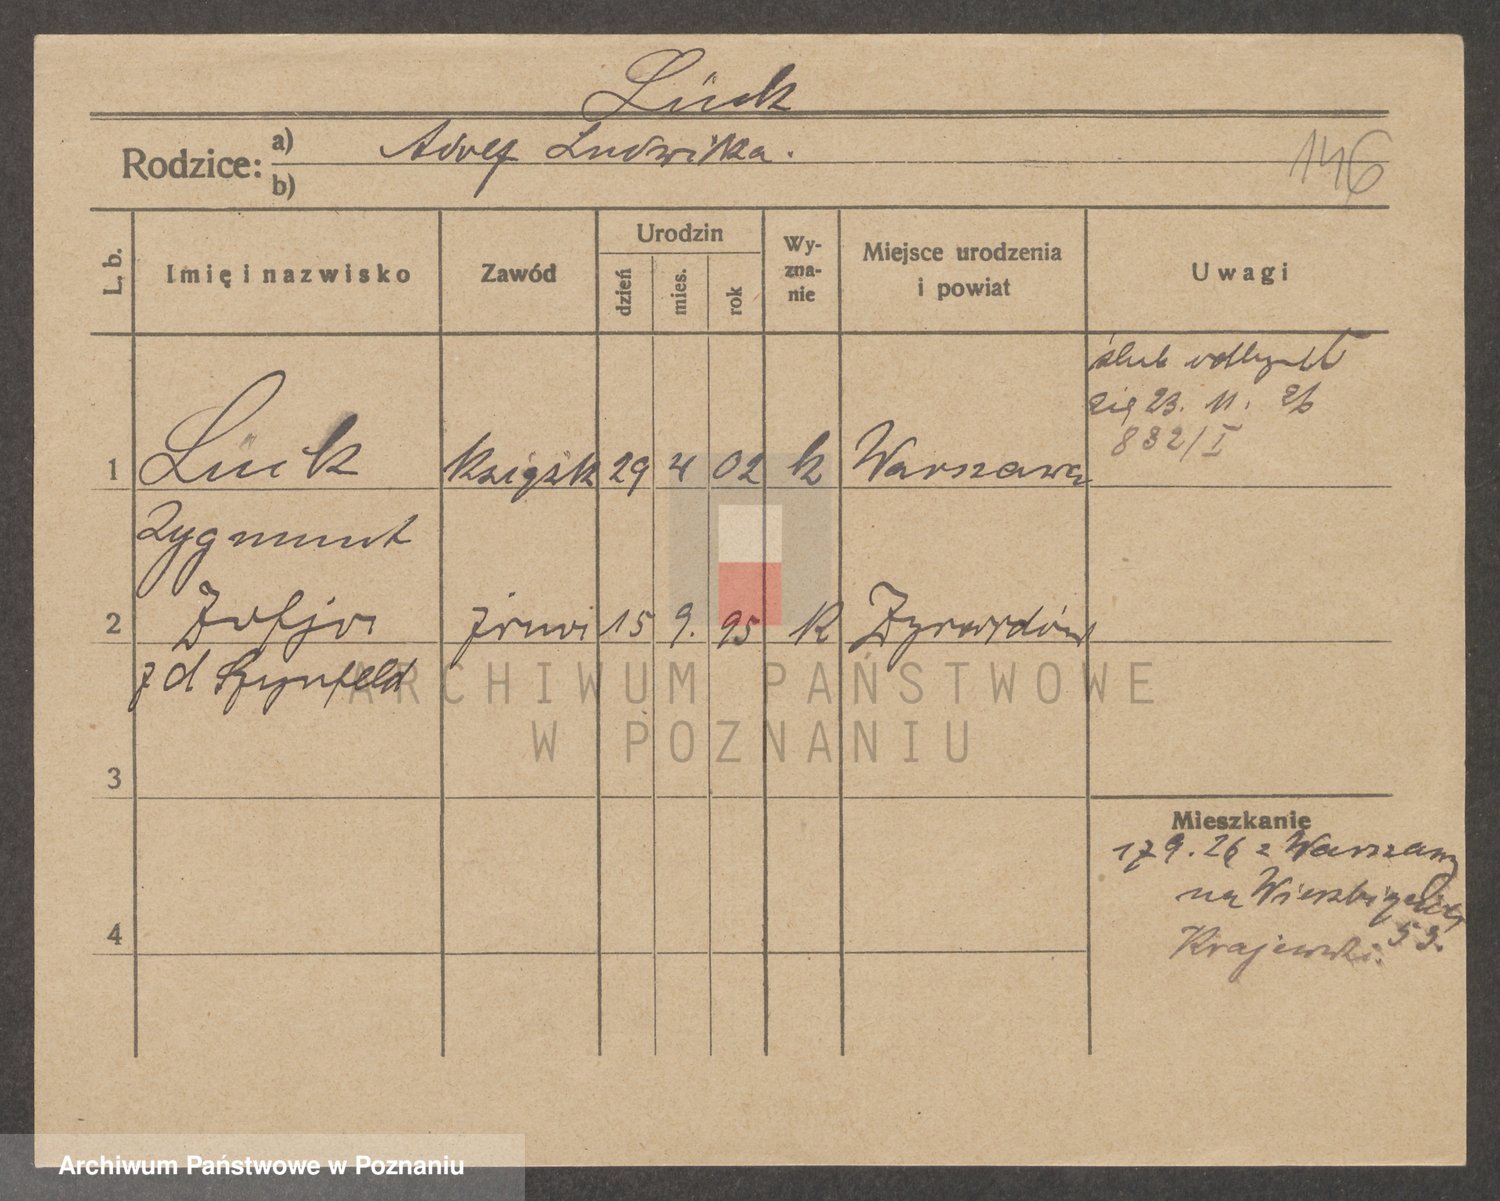 Lück
Rodzice: a) Adolf Ludwika.
b)
146
L. b.
Imię i nazwisko
Zawód
Urodzin
dzień
mies.
rok
Wy-
zna-
nie
Miejsce urodzenia
i powiat
Uwagi
ślub odbył
się 23. 11. 26
832/I
1 Lück książk 29 4 02 k Warszawa
Zygmunt
2 Zofja żona 15 9. 95 k Żyrardów
z d
3
4
Mieszkanie
17 9. 26 z Warszawy
na
53.
Krajewski.
ARCHIWUM PAŃSTWOWE
W POZNANIU
Archiwum Państwowe w Poznaniu